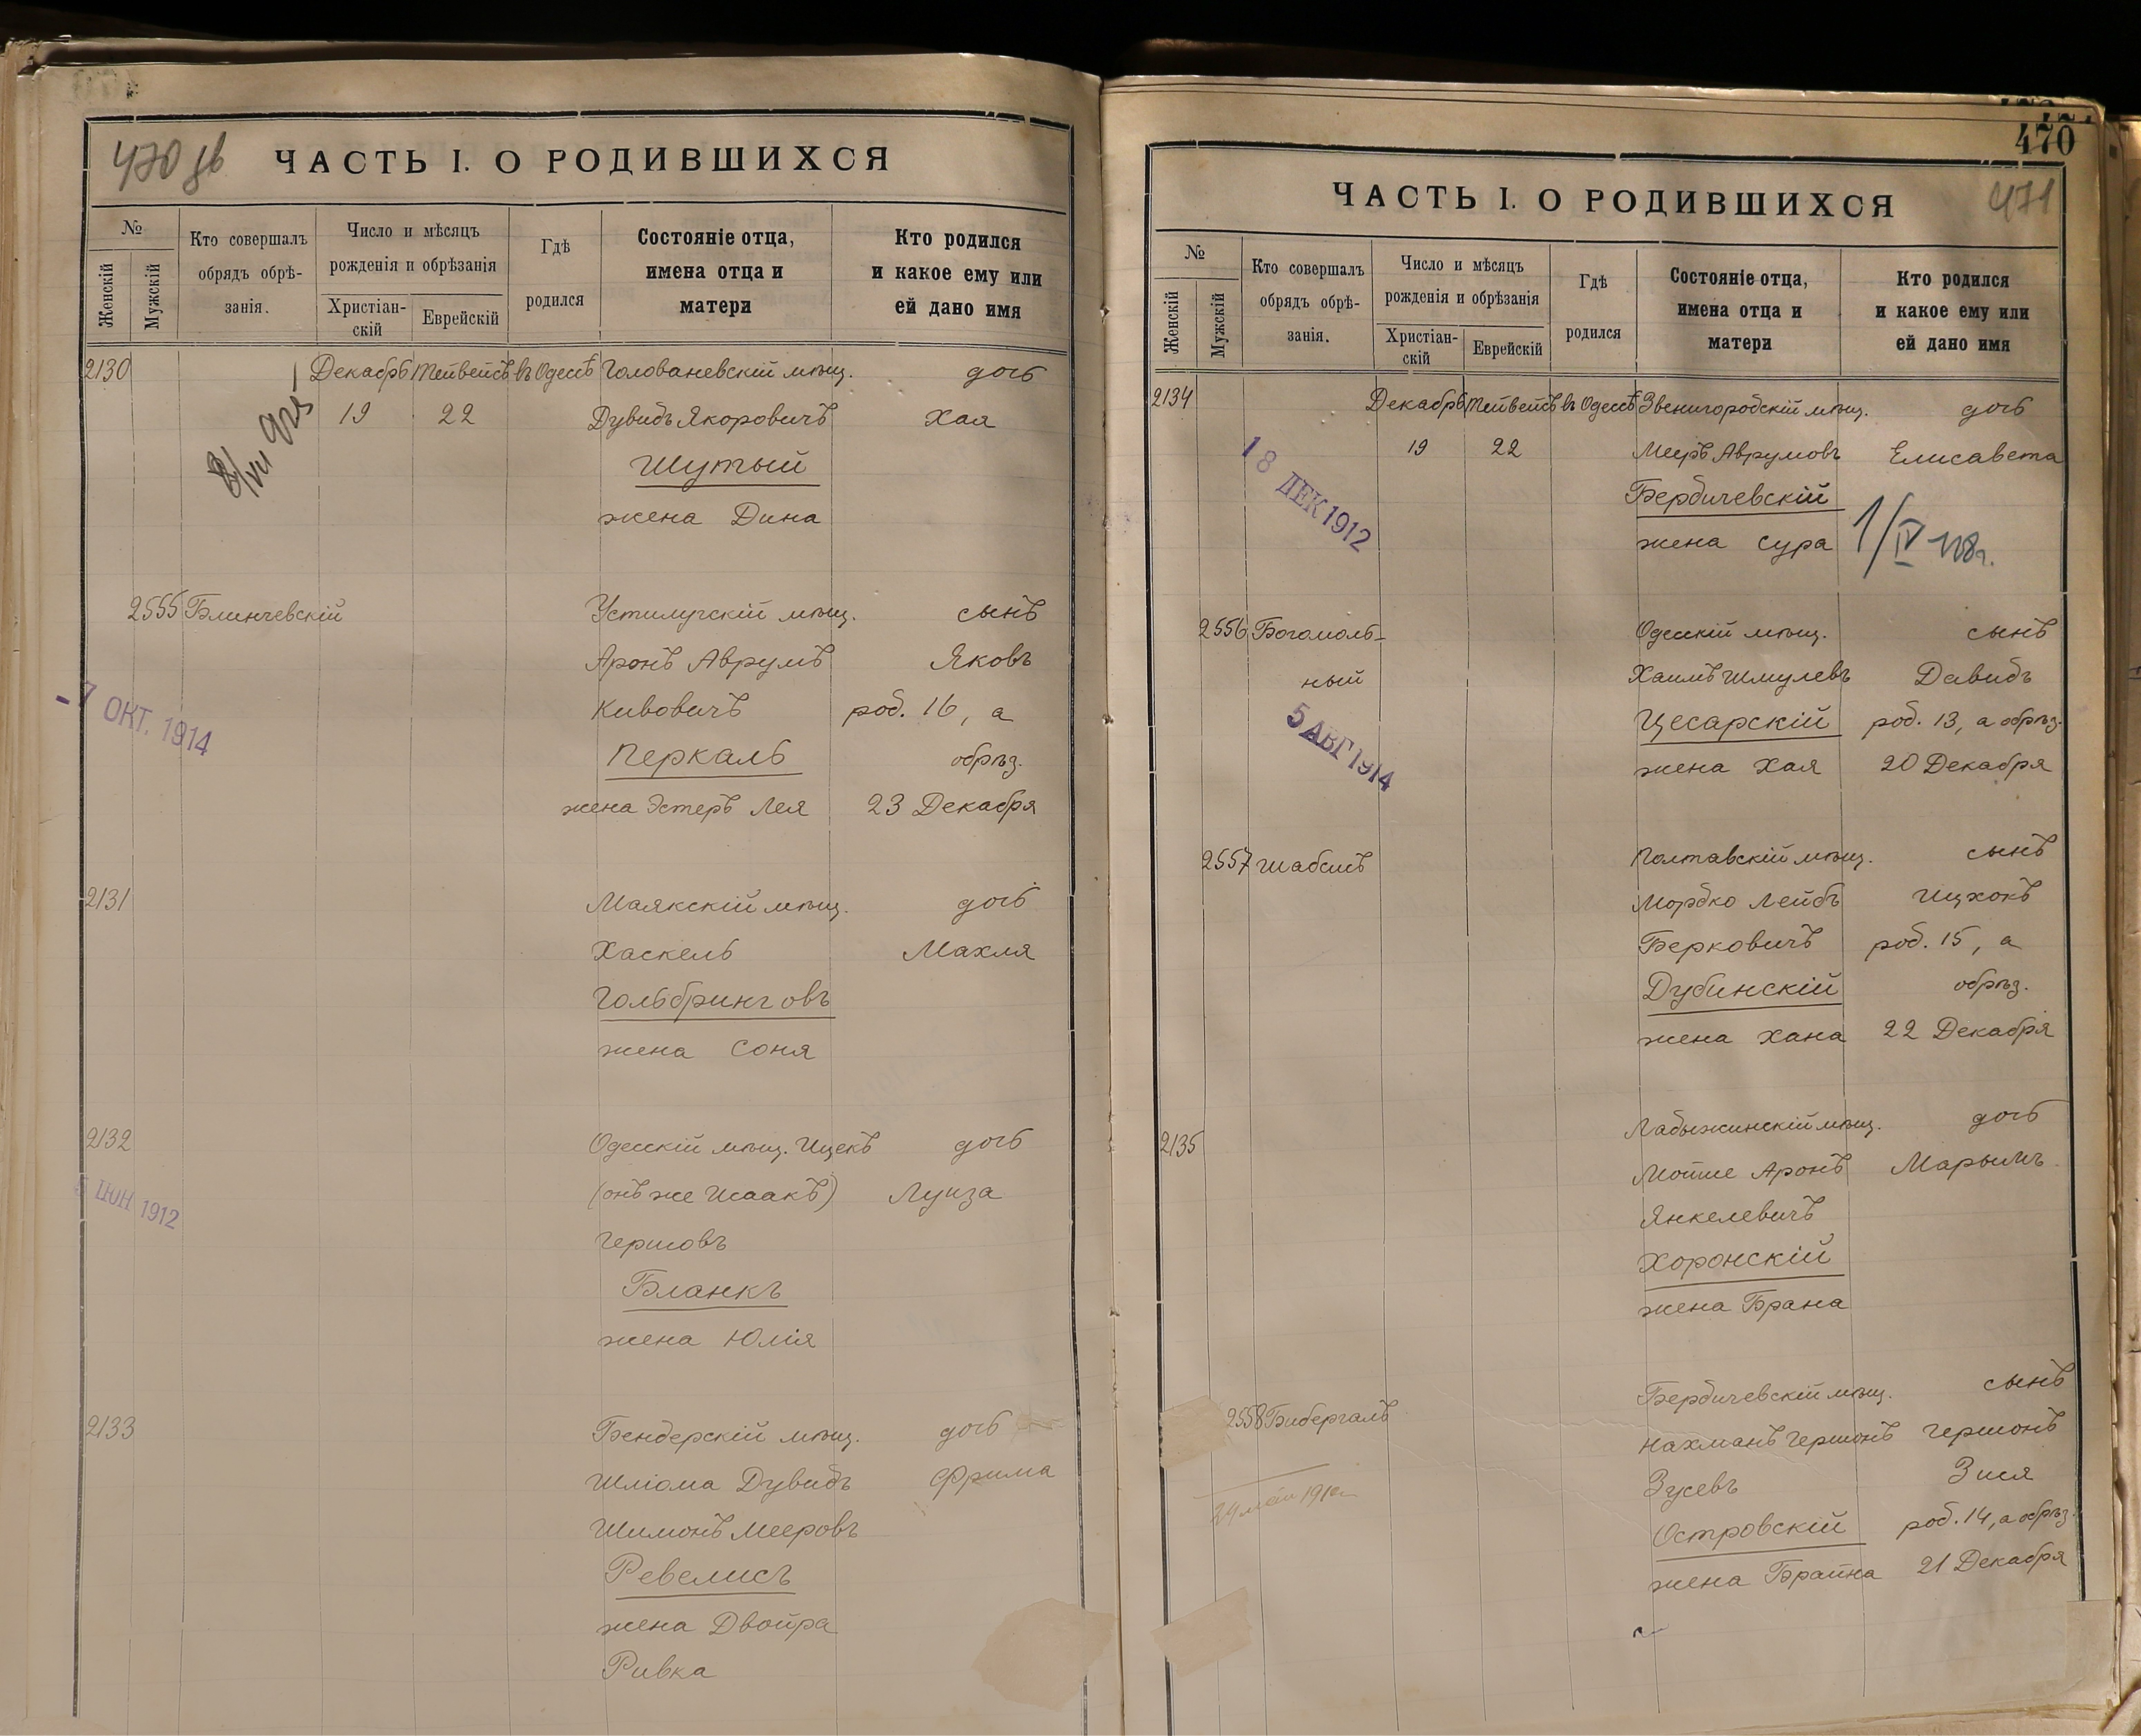 470 об
ЧАСТЬ I. О РОДИВШИХСЯ
№
Женскій
Мужскій
Кто совершалъ
обрядъ обрѣ-
занія.
Число и мѣсяцъ
рожденія и обрѣзанія
Христіан-
скій
Еврейскій
Гдѣ
родился
Состояніе отца,
имена отца и
матери
Кто родился
и какое ему или
ей дано имя
2130 Декабрь Тейвейсъ въ Одессѣ Голованевскій мѣщ. дочь
19 22 Дувидъ Якоровичъ Хая
Шутый
жена Дина
2555 Блинчевскій Устилугскій мѣщ. сынъ
Аронъ Аврумъ Яковъ
Кивовичъ род. 16, а
- 7 ОКТ. 1914
Перкаль обрѣз.
жена Эстеръ Лея 23 Декабря
2131 Маякскій мѣщ. дочь
Хаскель Махля
Гольбринговъ
жена Соня
2132 Одесскій мѣщ. Ицекъ дочь
(онъ же Исаакъ) Луиза
ІЮН 1912
Гершовъ
Бланкъ
жена Юлія
2133 Бендерскій мѣщ. дочь
Шліома Дувидъ Фрима
Шимонъ Мееровъ
Ревелисъ
жена Двойра
Ривка
470
ЧАСТЬ I. О РОДИВШИХСЯ
471
№
Женскій
Мужскій
Кто совершалъ
обрядъ обрѣ-
занія.
Число и мѣсяцъ
рожденія и обрѣзанія
Христіан-
скій
Еврейскій
Гдѣ
родился
Состояніе отца,
имена отца и
матери
Кто родился
и какое ему или
ей дано имя
2134 Декабрь Тейвейсъ въ Одессѣ Звенигородскій мѣщ. дочь
19 22 Меиръ Аврумовъ Елисавета
18 ДЕК 1912
Бердичевскій
жена Сура
2556 Богомоль- Одесскій мѣщ. сынъ
ный Хаимъ Шмулевъ Давидъ
5 АВГ 1914
Цесарскій род. 13, а обрѣз.
жена Хая 20 Декабря
2557 Шабсисъ Полтавскій мѣщ. сынъ
Мордко Лейбъ Ицхокъ
Берковичъ род. 15, а
Дубинскій обрѣз.
жена Хана 22 Декабря
2135 Лабыжинскій мѣщ. дочь
Мойше Аронъ Марьимъ
Янкелевичъ
Хоронскій
жена Брана
2558 Бибергалъ Бердичевскій мѣщ. сынъ
Нахманъ Гершонъ Гершонъ
Зусевъ Зися
Островскій род. 14, а обрѣз.
жена Брайна 21 Декабря